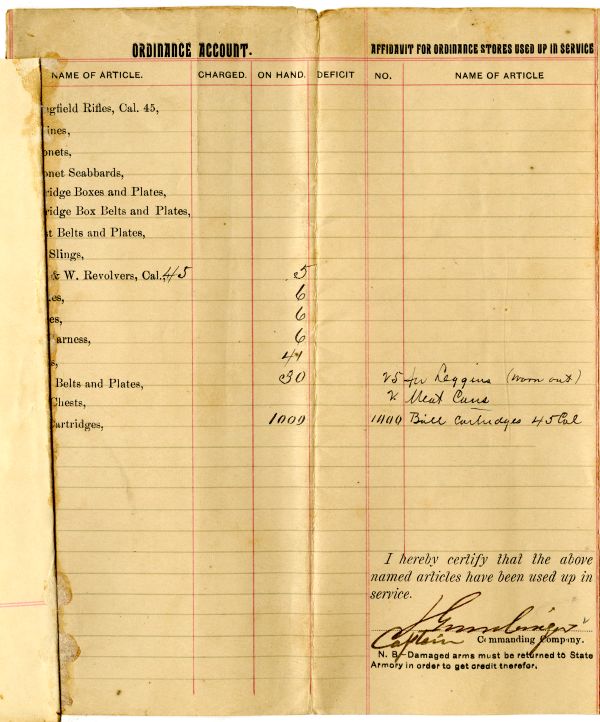 ORDINANCE ACCOUNT.
NAME OF ARTICLE. CHARGED. ON HAND. DEFICIT
gfield Rifles, Cal. 45,
ines,
onets,
onet Scabbards,
ridge Boxes and Plates,
ridge Box Belts and Plates,
st Belts and Plates,
Slings,
& W. Revolvers, Cal. 45 5
es, 6
es, 6
arness, 6
s, 41
Belts and Plates, 30
Chests,
artridges, 1000
AFFIDAVIT FOR ORDINANCE STORES USED UP IN SERVICE
NO. NAME OF ARTICLE
25 pr Leggins (worn out)
2 Meat Cans
1000 Ball Cartridges 45 Cal
I hereby certify that the above
named articles have been used up in
service.
Captain Commanding Company.
N. B.—Damaged arms must be returned to State
Armory in order to get credit therefor.